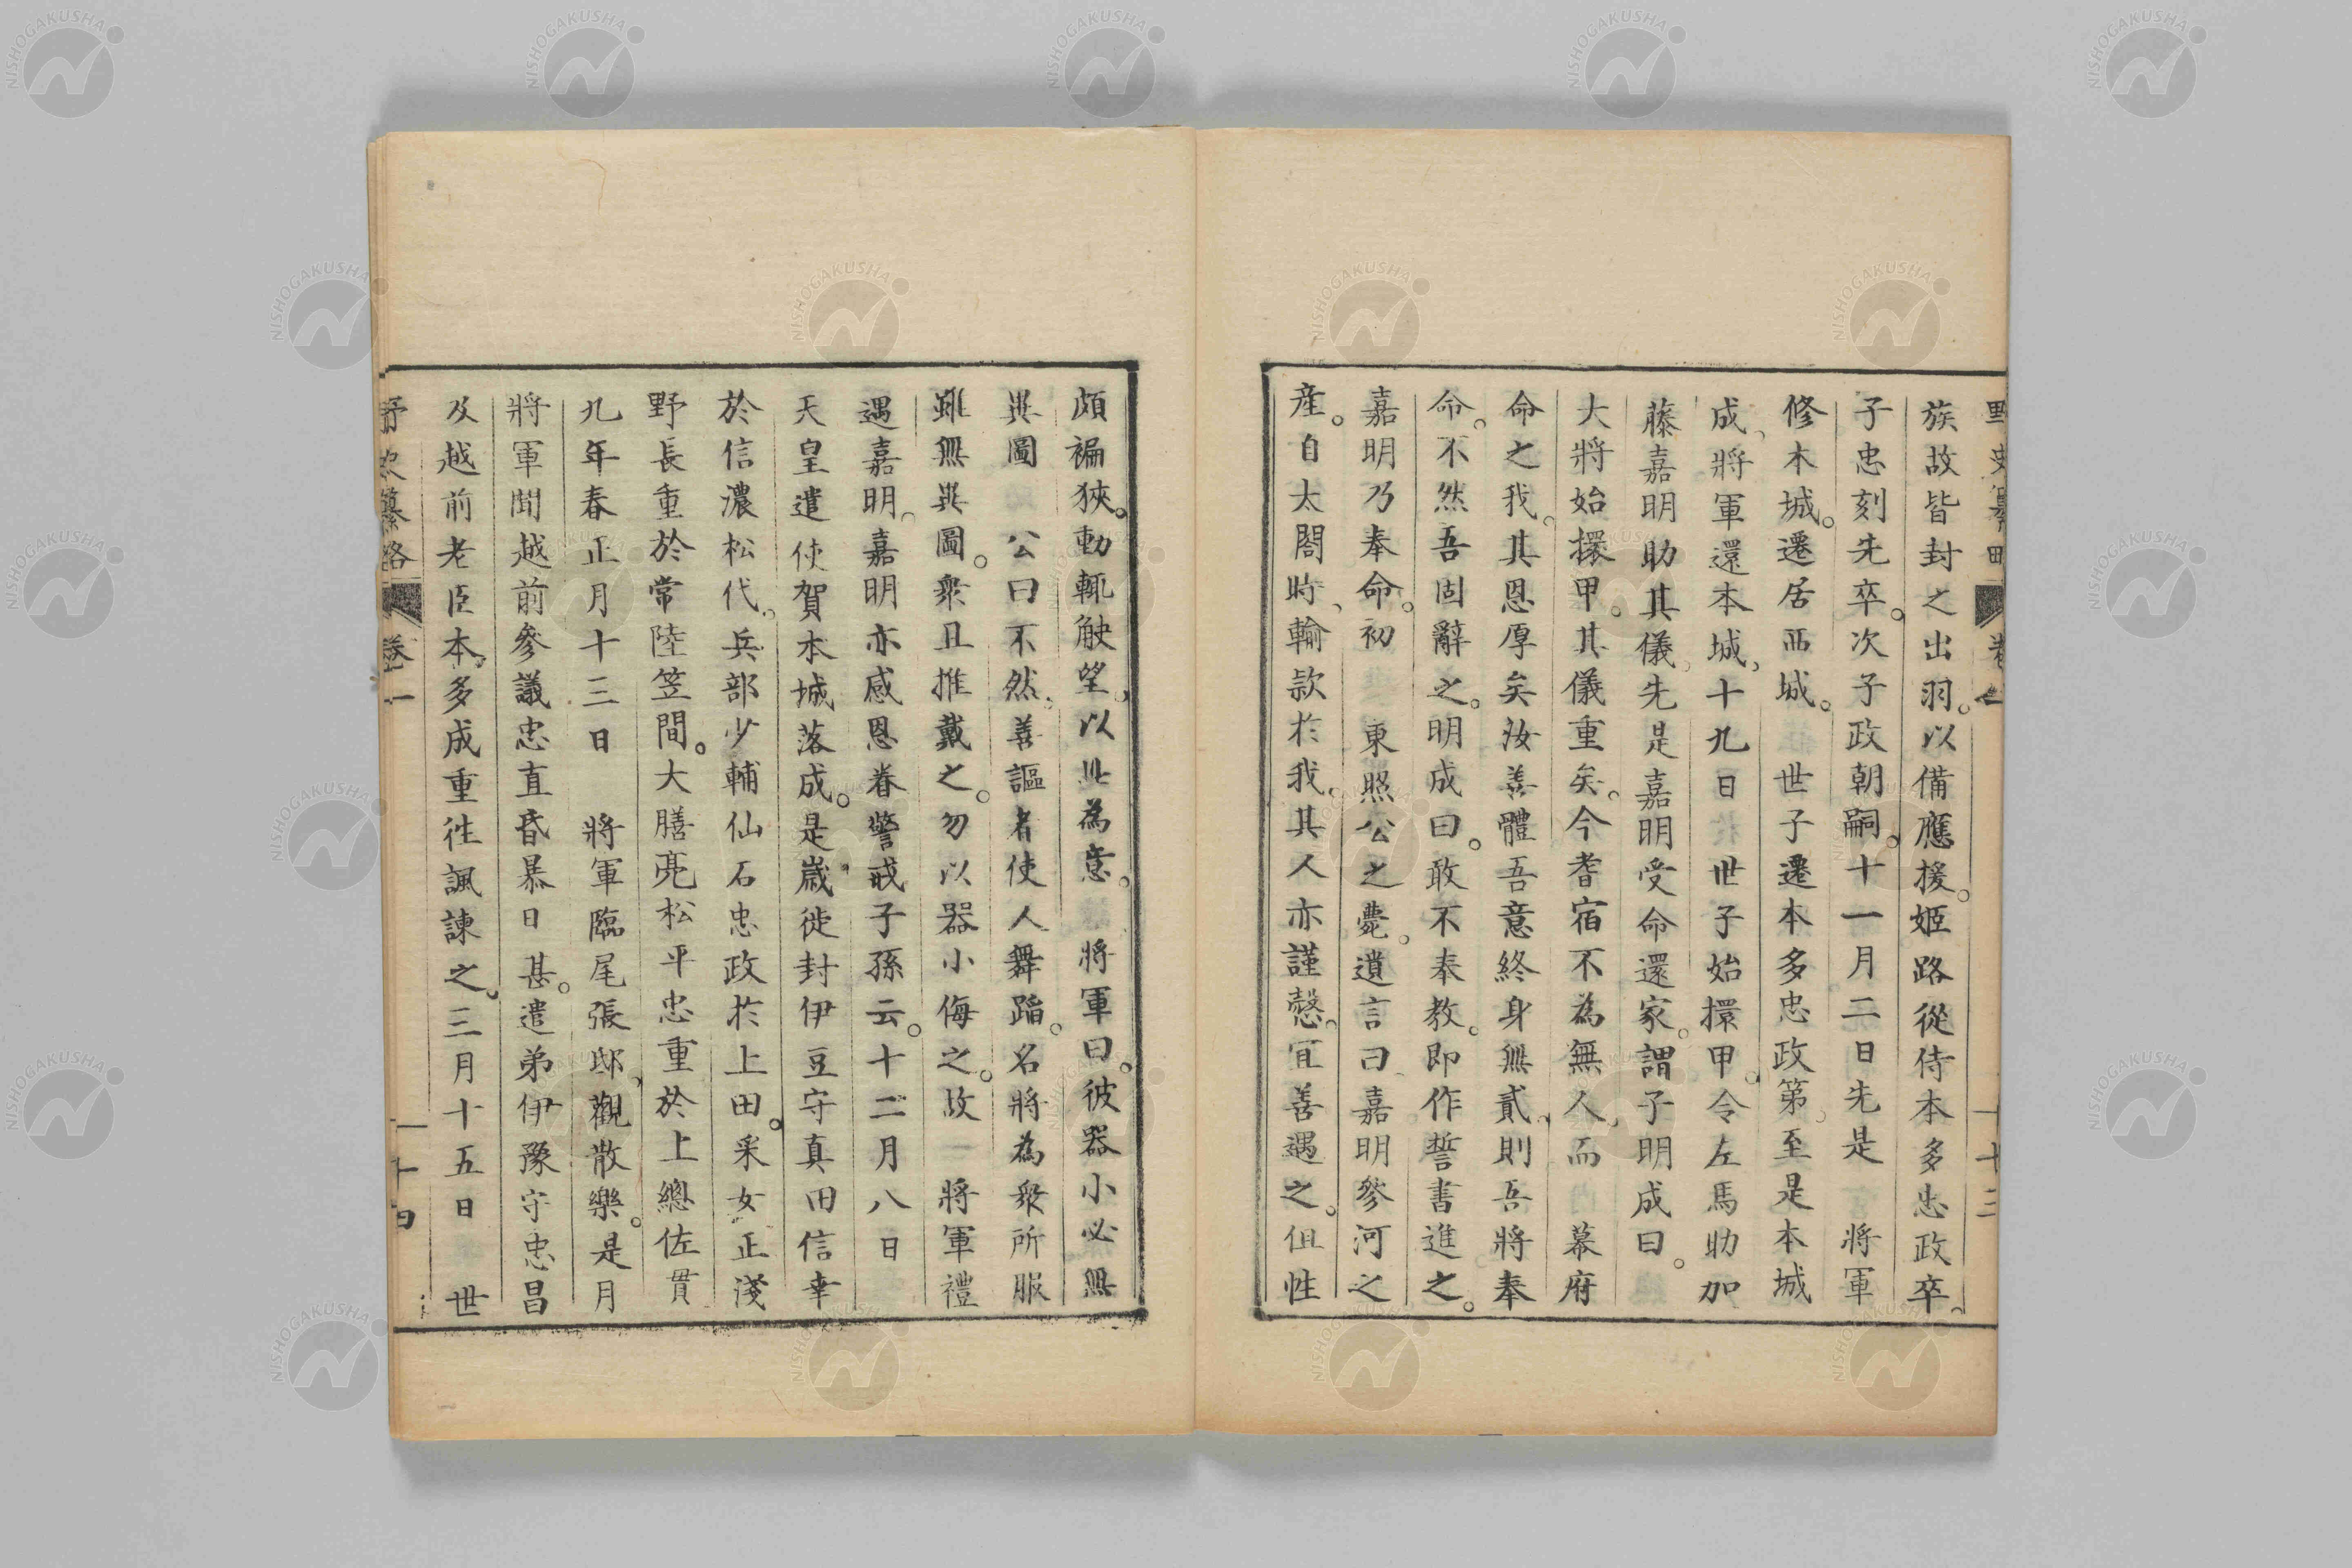 族故皆封之出羽。以備應援。姬路從侍本多忠政卒。
子忠刻先卒。次子政朝嗣。十一月二日先是 將軍
修本城。遷居西城。 世子遷本多忠政第。至是本城
成、將軍還本城、十九日 世子始擐甲。令左馬助加
藤嘉明助其儀。先是嘉明受命還家。謂子明成曰。
大將始擐甲。其儀重矣。今耆宿不為無人、而 幕府
命之我。其恩厚矣汝善體吾意終身無貳、則吾將奉
命。不然吾固辭之。明成曰。敢不奉教。即作誓書進之。
嘉明乃奉命。初 東照公之薨。遺言曰嘉明參河之
産。自太閤時、輸款於我。其人亦謹愨。宜善遇之。但性
頗褊狹。動輒觖望、以此為意。 將軍曰。彼器小必無
異圖 公曰不然。善謳者使人舞蹈。名將為衆所服
雖無異圖。衆且推戴之。勿以器小侮之。故 將軍禮
遇嘉明。嘉明亦感恩眷警戒子孫云。十二月八日
天皇遣使賀本城落成。是歲徙封伊豆守真田信幸
於信濃松代。兵部少輔仙石忠政於上田。采女正淺
野長重於常陸笠間。大膳亮松平忠重於上總佐貫
九年春正月十三日 將軍臨尾張邸、觀散樂。是月
將軍聞越前參議忠直昏暴日甚。遣弟伊豫守忠昌
及越前老臣本多成重往諷諫之。三月十五日 世
野史纂略 卷一 十四